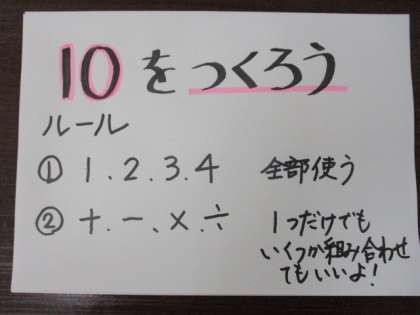 10をつくろう
ルール
① 1.2.3.4 全部使う
② +.-.×.÷ 1つだけでも
いくつか組み合わせ
てもいいよ!